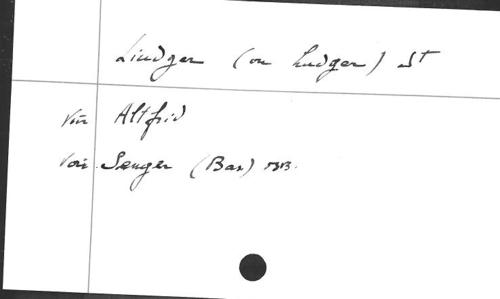 Liudger (ou Ludger) St
Voir Altfrid
Voir Senger (Bas)